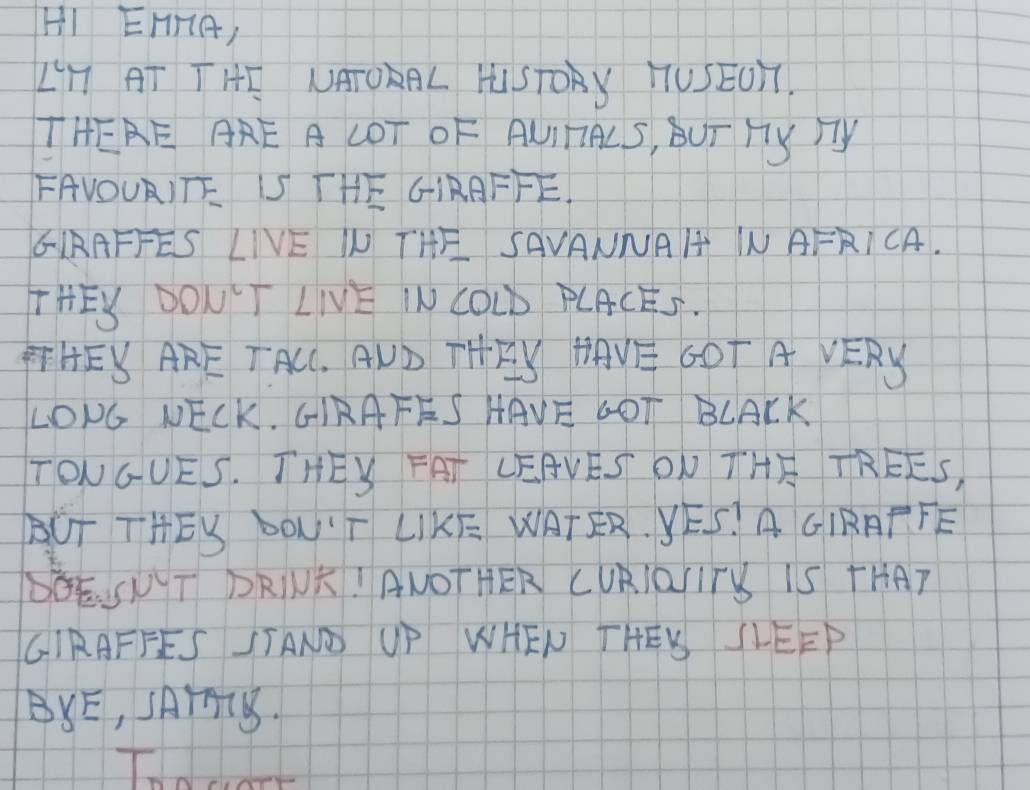 HI EMMA,
I'M AT THE NATURAL HISTORY MUSEUM.
THERE ARE A LOT OF ANIMALS, BUT MY MY
FAVOURITE IS THE GIRAFFE.
GIRAFFES LIVE IN THE SAVANNAH IN AFRICA.
THEY DON'T LIVE IN COLD PLACES.
THEY ARE TALL. AND THEY HAVE GOT A VERY
LONG NECK. GIRAFES HAVE GOT BLACK
TONGUES. THEY EAT LEAVES ON THE TREES,
BUT THEY DON'T LIKE WATER. YES! A GIRAFFE
DOESN'T DRINK! ANOTHER CURIOSITY IS THAT
GIRAFFES STAND UP WHEN THEY SLEEP
BYE, SAMMY.